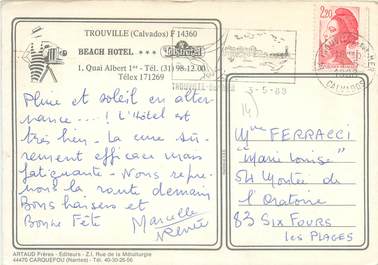 TROUVILLE (Calvados) F 14360
BEACH HOTEL ***
1, Quai Albert 1er - Tél. (31) 98.12.00
Télex 171269
2,20
TROUVILLE
CALVADOS
3-5-89
14
Pluie et soleil en alter
nance...! L'Hôtel est
très bien. La cure sû-
rement efficace mais
fatigante - Nous repre-
nons la route demain
Bons baisers et
Bonne Fête
Marcelle
Mme FERRACCI
"Marie Louise"
54 Montée de
l'Oratoire
83 SIX FOURS
les PLAGES
ARTAUD Frères - Editeurs - Z.I. Rue de la Métallurgie
44470 CARQUEFOU (Nantes) - Tél. 40-30-26-56